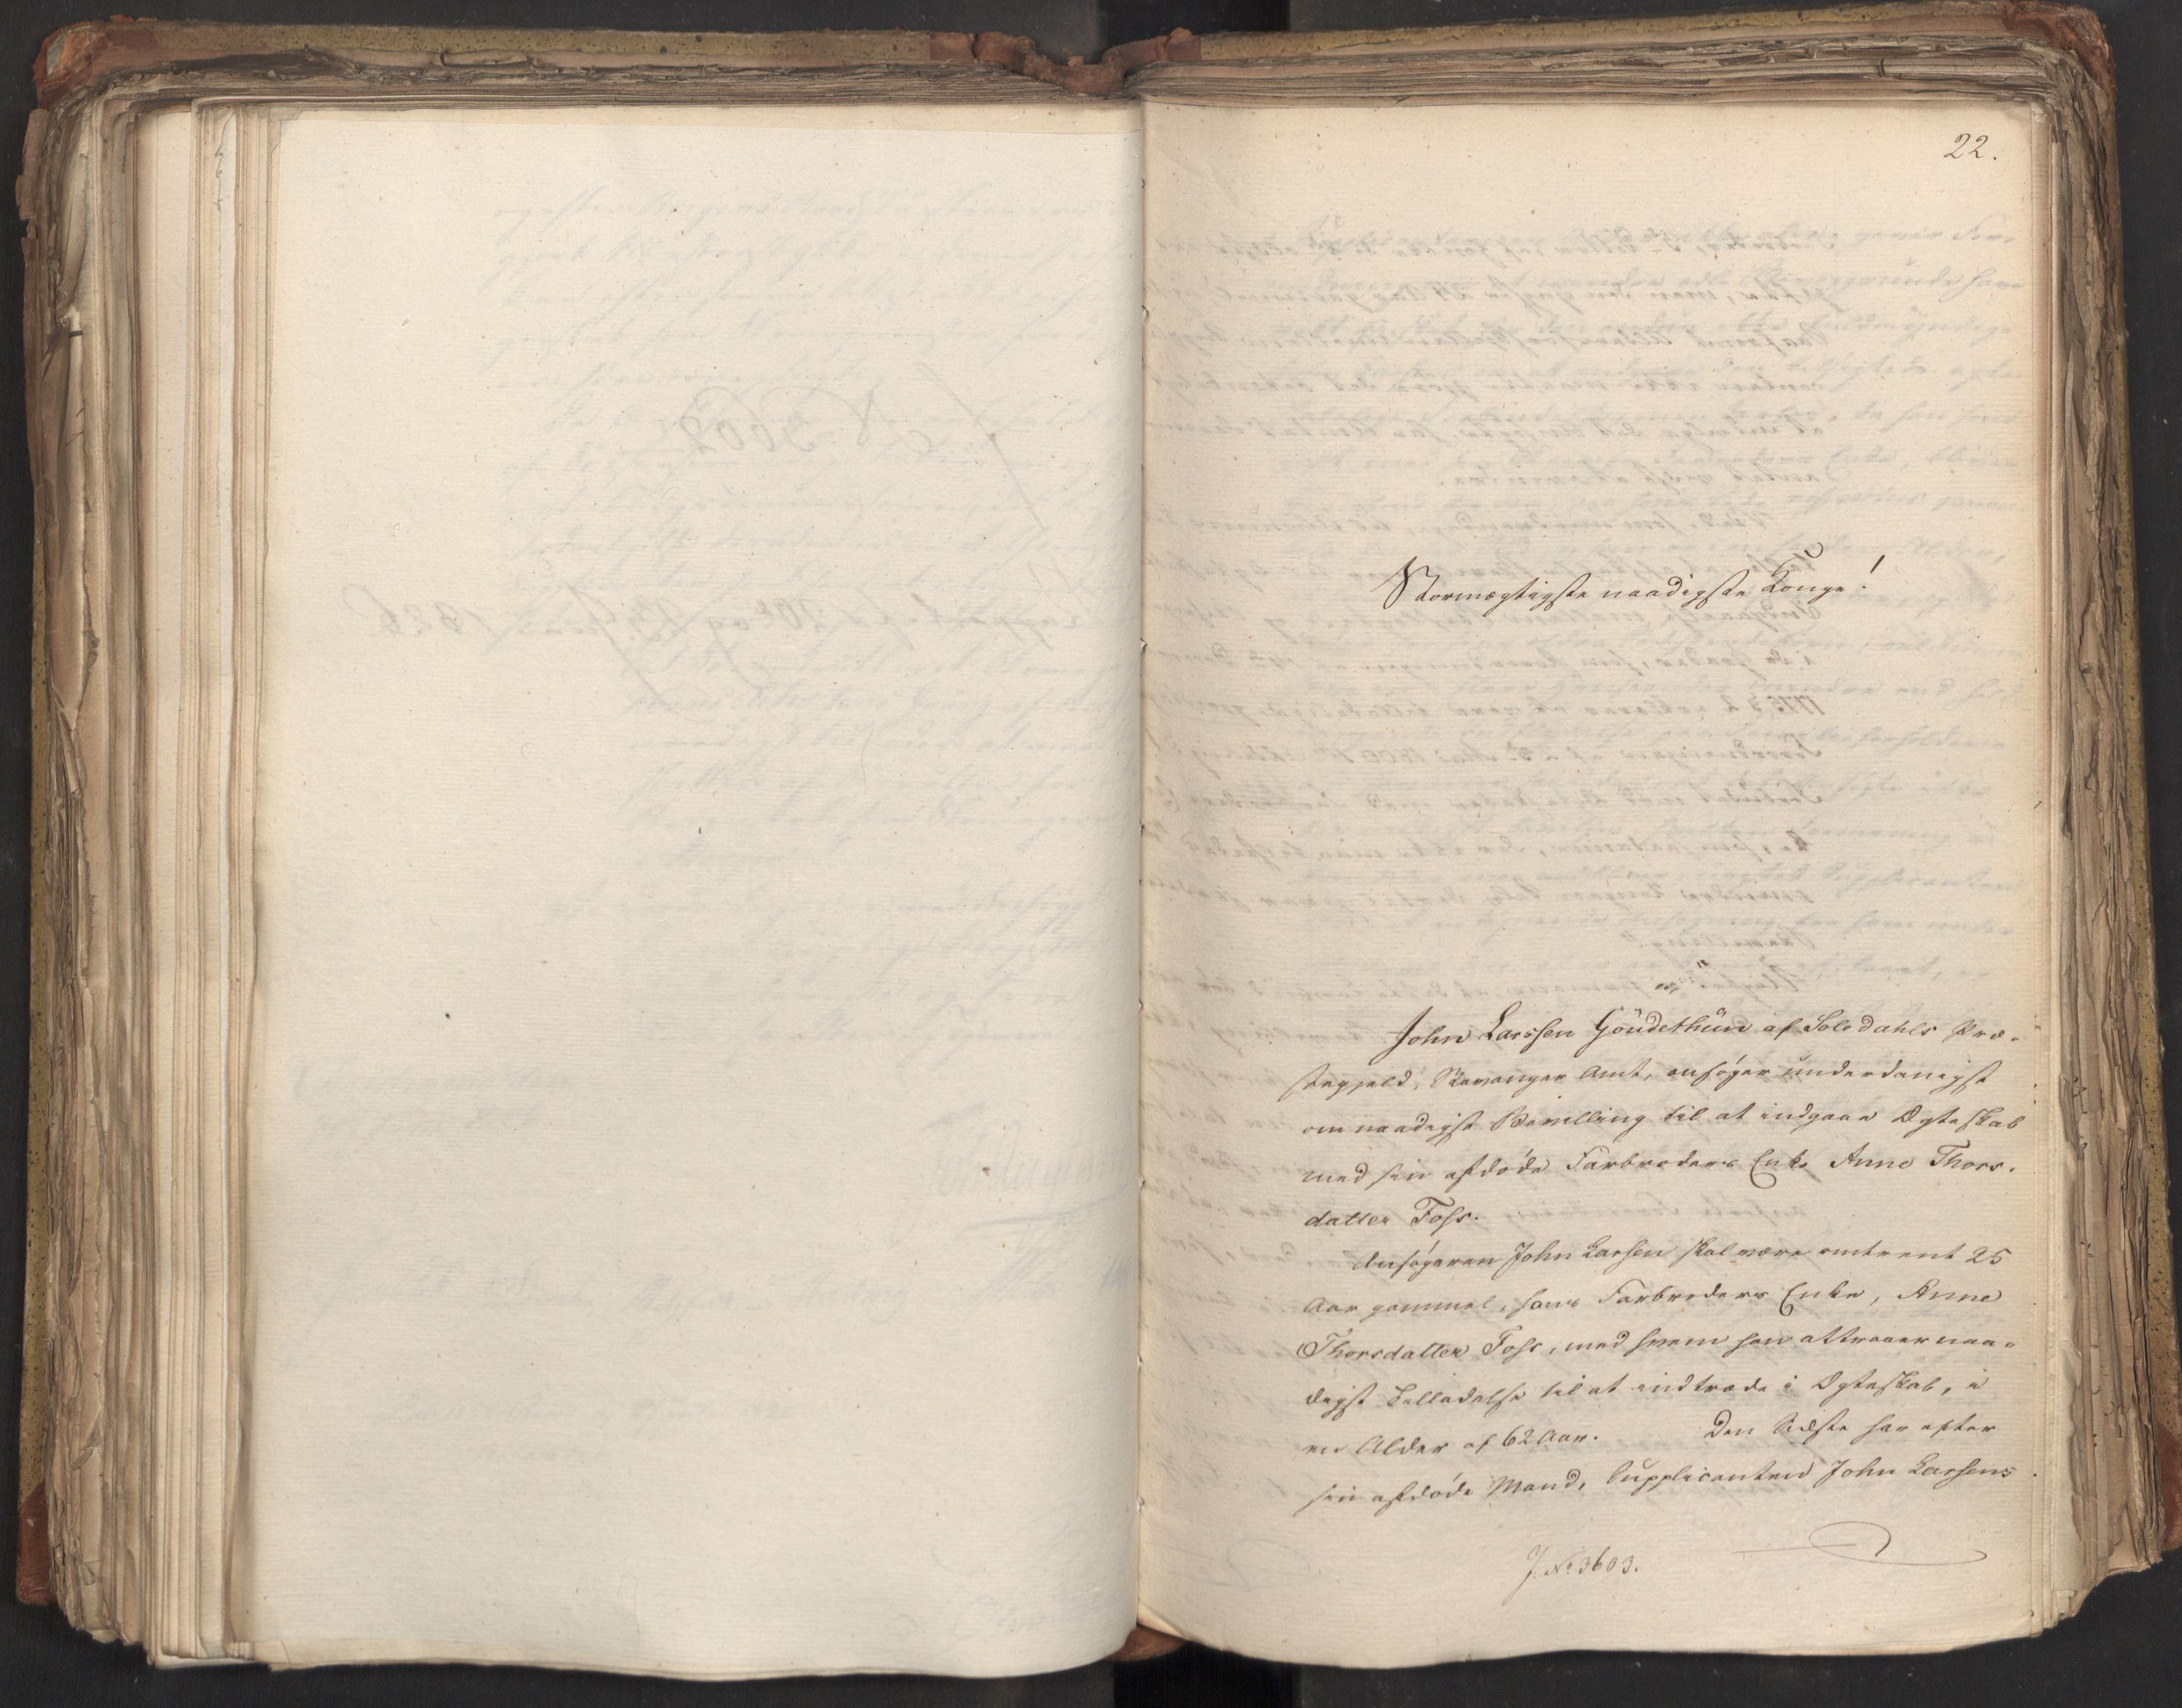 22.
Stormægtigste naadigste Konge!
John Larssen Göudethün af Soledahls Præ-
stegjeld, Stavanger Amt, ansøger underdanigst
om naadigst Bevilling til at indgaae Ægteskab
med sin afdøde Farbroders Enke Anne Thors-
datter Foss.
Ansøgeren John Larsen skal være omtrent 25
Aar gammel, hans Farbroders Enke, Anne
Thorsdatter Foss, med hvem han attraaer naa-
digst Tilladelse til at indtræde i Ægteskab, i
en Alder af 62 Aar. Den Sidste har efter
sin afdøde Mand, Supplicanten John Larsens
J. No 3603.